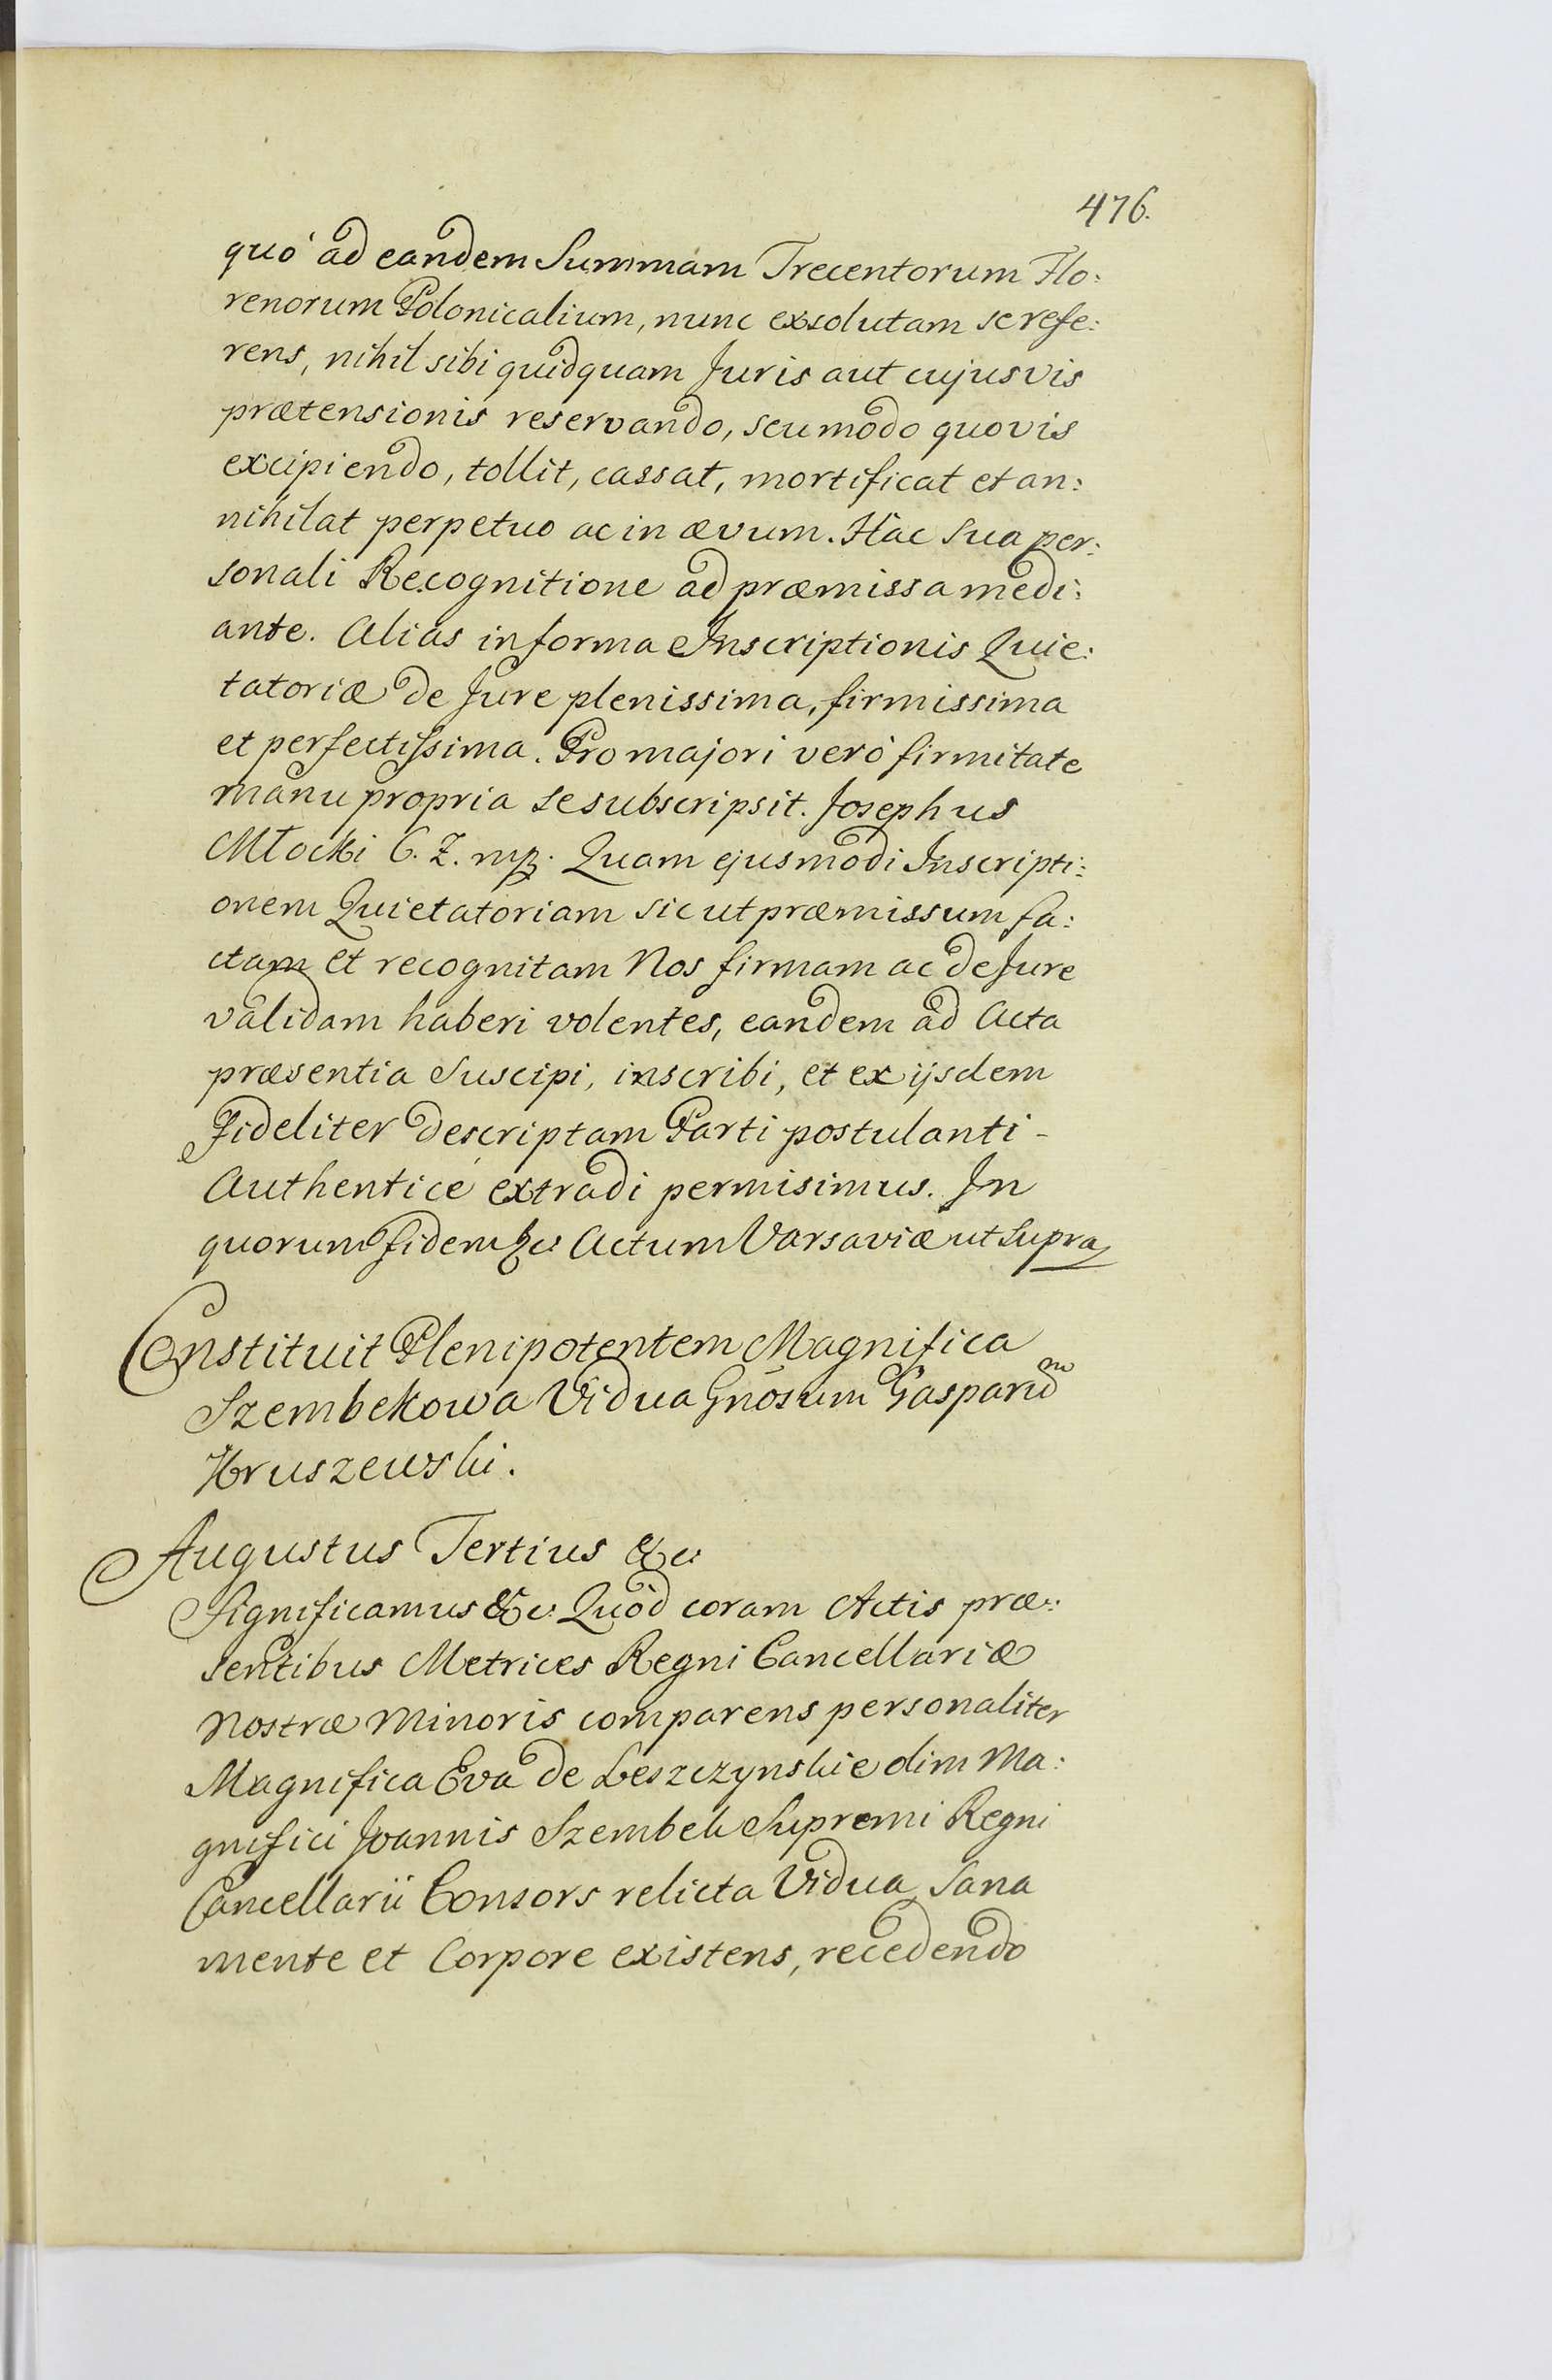 476.
quó ad eandem Summam Trecentorum Flo:
renorum Polonicalium, nunc exsolutam se refe:
rens, nihil sibi quidquam Juris aut cujusvis
prætensionis reservando, seu modo quovis
excipiendo, tollit, cassat, mortificat et an:
nihilat perpetuo ac in ævum. Hac Sua per:
sonali Recognitione ad præmissa medi:
ante. Alias in forma Inscriptionis Quie:
tatoriæ de Jure plenissima, firmissima
et perfectissima. Pro majori veró firmitate
manu propria se subscripsit. Josephus
Młocki C. Z. mp. Quam ejusmodi Inscripti:
onem Quietatoriam sicut præmissum fa:
ctam et recognitam Nos firmam ac de Jure
validam haberi volentes, eandem ad Acta
præsentia Suscipi, inscribi, et ex ijsdem
Fideliter descriptam Parti postulanti -
Authenticé extradi permisimus. In
quorum fidem &c: Actum Varsaviæ ut Supra
Constituit Plenipotentem Magnifica
Szembekowa Vidua Gnosum Gasparu͂m
Hruszewski.
Augustus Tertius &c:
Significamus &c: Quòd coram Actis præ:
sentibus Metrices Regni Cancellariæ
Nostræ Minoris comparens personaliter
Magnifica Eva de Leszczynskie olim Ma:
gnifici Joannis Szembek Supremi Regni
Cancellarii Consors relicta Vidua, Sana
mente et Corpore existens, recedendo